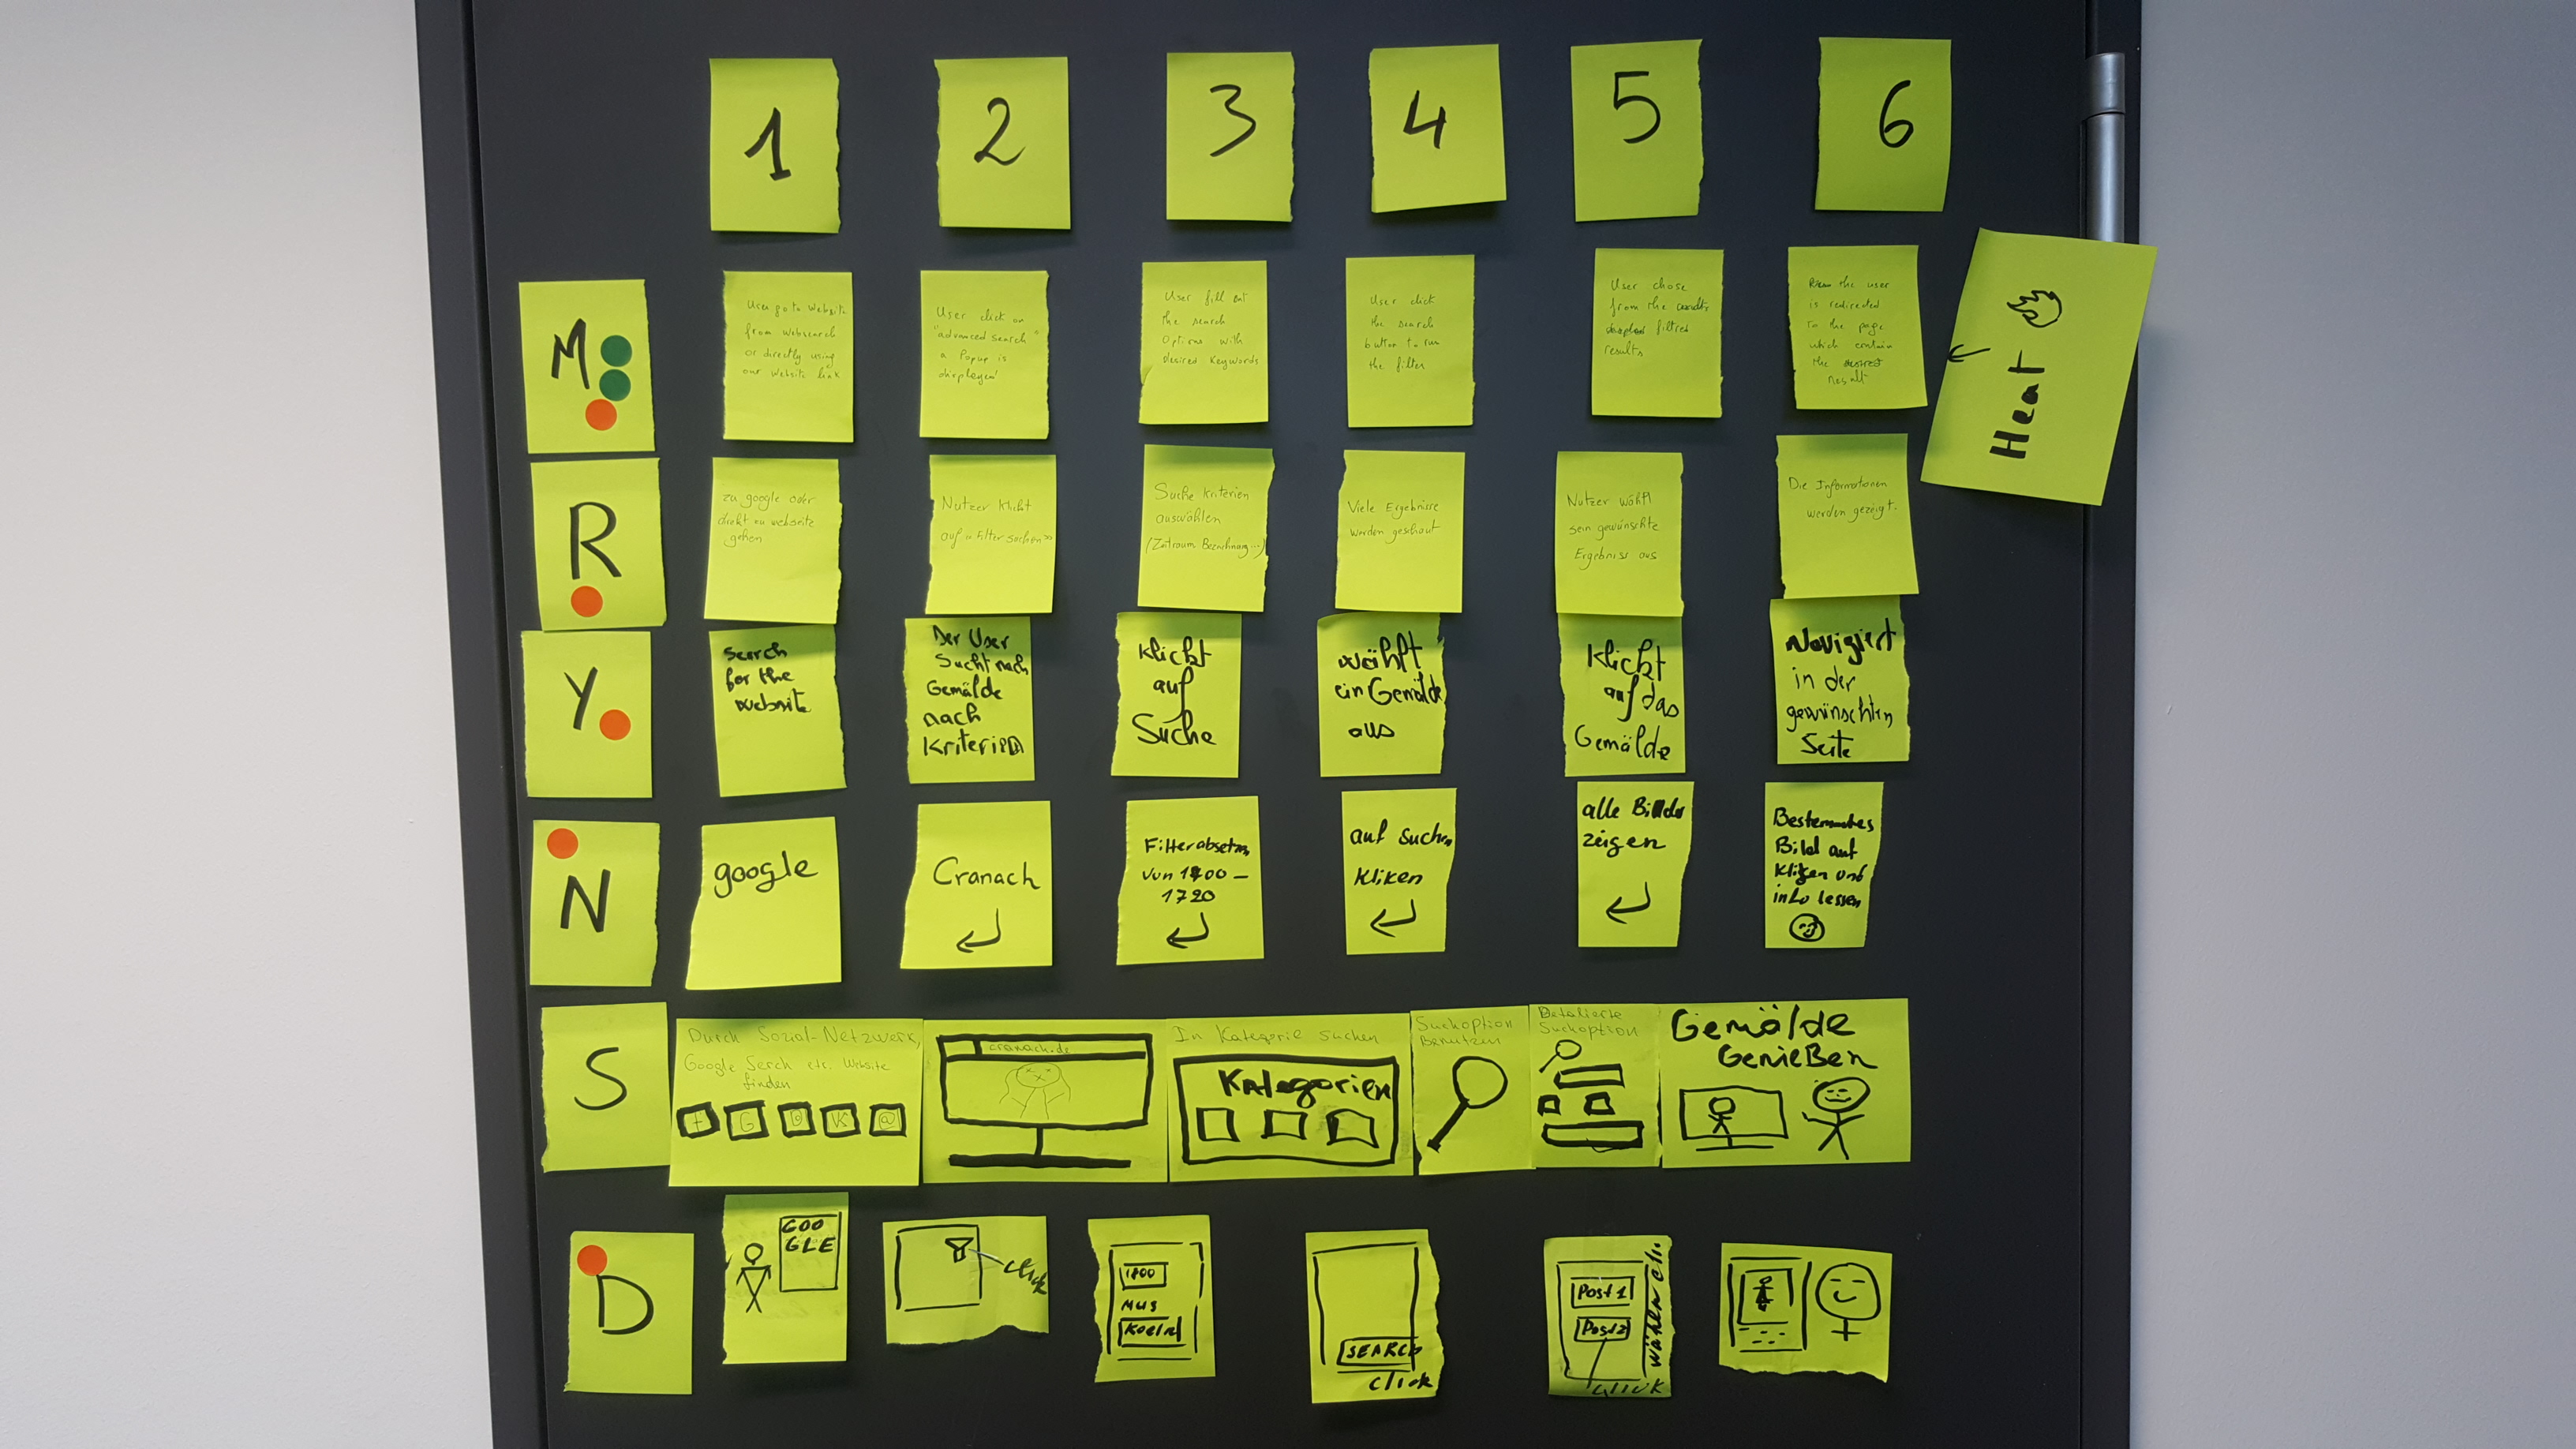 1
2
3
4
5
6
M
User go to website
from websearch
or directly using
our website link
User click on
"advanced search"
a Popup is
displayed
User fill out
the search
Options with
desired keywords
User click
the search
button to run
the filter
User chose
from the
filtred
results
the user
is redirected
to the page
which contain
the
result
Heat
R
zu google oder
direkt zu webseite
gehen
Nutzer klickt
auf «Filter suchen»
Suche Kriterien
auswählen
(Zeitraum Bezeichnung...)
Viele Ergebnisse
werden geschaut
Nutzer wählt
sein gewünschte
Ergebniss aus
Die Informationen
werden gezeigt.
Y
Search
for the
website
Der User
Sucht nach
Gemälde
nach
Kriterien
Klickt
auf
Suche
wählt
ein Gemälde
aus
Klickt
auf das
Gemälde
Navigiert
in der
gewünschten
Seite
N
google
Cranach
Filter absetzen
von 1400 -
1720
auf suchen
kliken
alle Bilder
zeigen
Bestemmtes
Bild auf
kliken und
info lessen
S
Durch Sozial-Netzwerk,
Google Serch etc. Website
finden
G
@
cranach.de
In Kategorie suchen
Kategorien
Suchoption
Benutzen
Detalierte
Suchoption
Gemälde
Genießen
D
GOO
GLE
click
1700
MUS
Koeln
SEARCH
click
Post 1
Post 2
click